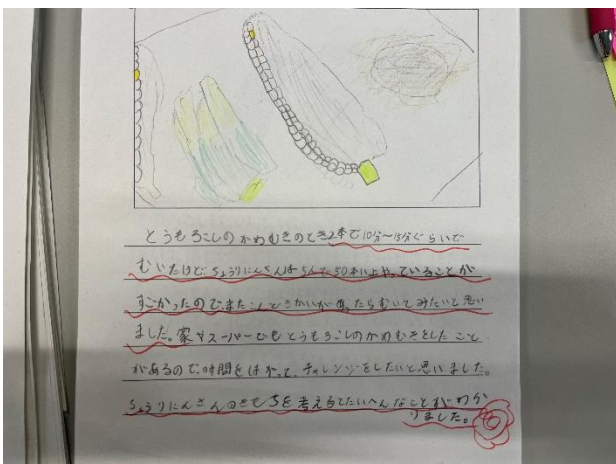 とうもろこしのかわむきのとき2本で10分～15分ぐらいで
むいたけど、ちょうりいんさんは5人で50本以上やっていることが
すごかったので、またこんどきかいが有ったらむいてみたいと思い
ました。家やスーパーでもとうもろこしのかわむきをしたこと
があるので、時間をはかって、チャレンジをしたいと思いました。
ちょうりいんさんのきもちを考えるとたいへんなことがわか
りました。